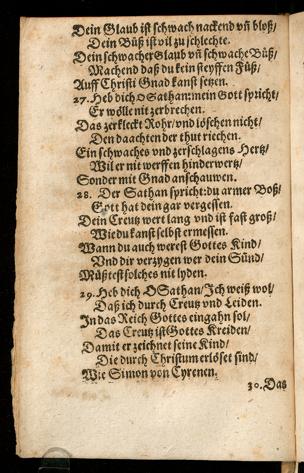 Dein Glaub ist schwach nackend vñ bloß/
Dein Büß ist vil zu schlechte.
Dein schwacher Glaub vñ schwache Büß/
Machend daß du kein steyffen Füß/
Auff Christi Gnad kanst setzen.
27. Heb dich O Sathan: mein Gott spricht/
Er wölle nit zerbrechen.
Das zerkleckt Rohr/ vnd löschen nicht/
Den daachten der thut riechen.
Ein schwaches vnd zerschlagens Hertz/
Wil er mit werffen hinderwertz/
Sonder mit Gnad anschauwen.
28. Der Sathan spricht: du armer Boß/
Gott hat dein gar vergessen.
Dein Creutz wert lang vnd ist fast groß/
Wie du kanst selbst ermessen.
Wann du auch werest Gottes Kind/
Vnd dir verzygen wer dein Sünd/
Müßtest solches nit lyden.
29. Heb dich O Sathan/ Ich weiß wol/
Daß ich durch Creutz vnd Leiden.
In das Reich Gottes eingahn sol/
Das Creutz ist Gottes Kreiden/
Damit er zeichnet seine Kind/
Die durch Christum erlöset sind/
Wie Simon von Cyrenen.
30. Das